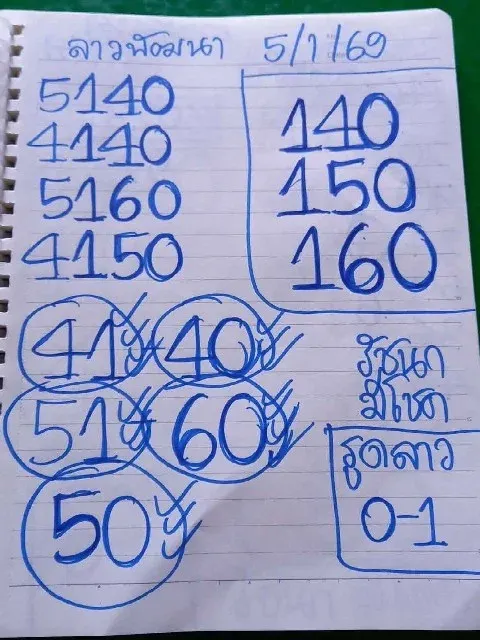 ลาวพัฒนา 5/1/69
5140
4140
5160
4150
140
150
160
41 40
51 60
50
รัชนก
มีโชค
รูดลาว
0-1